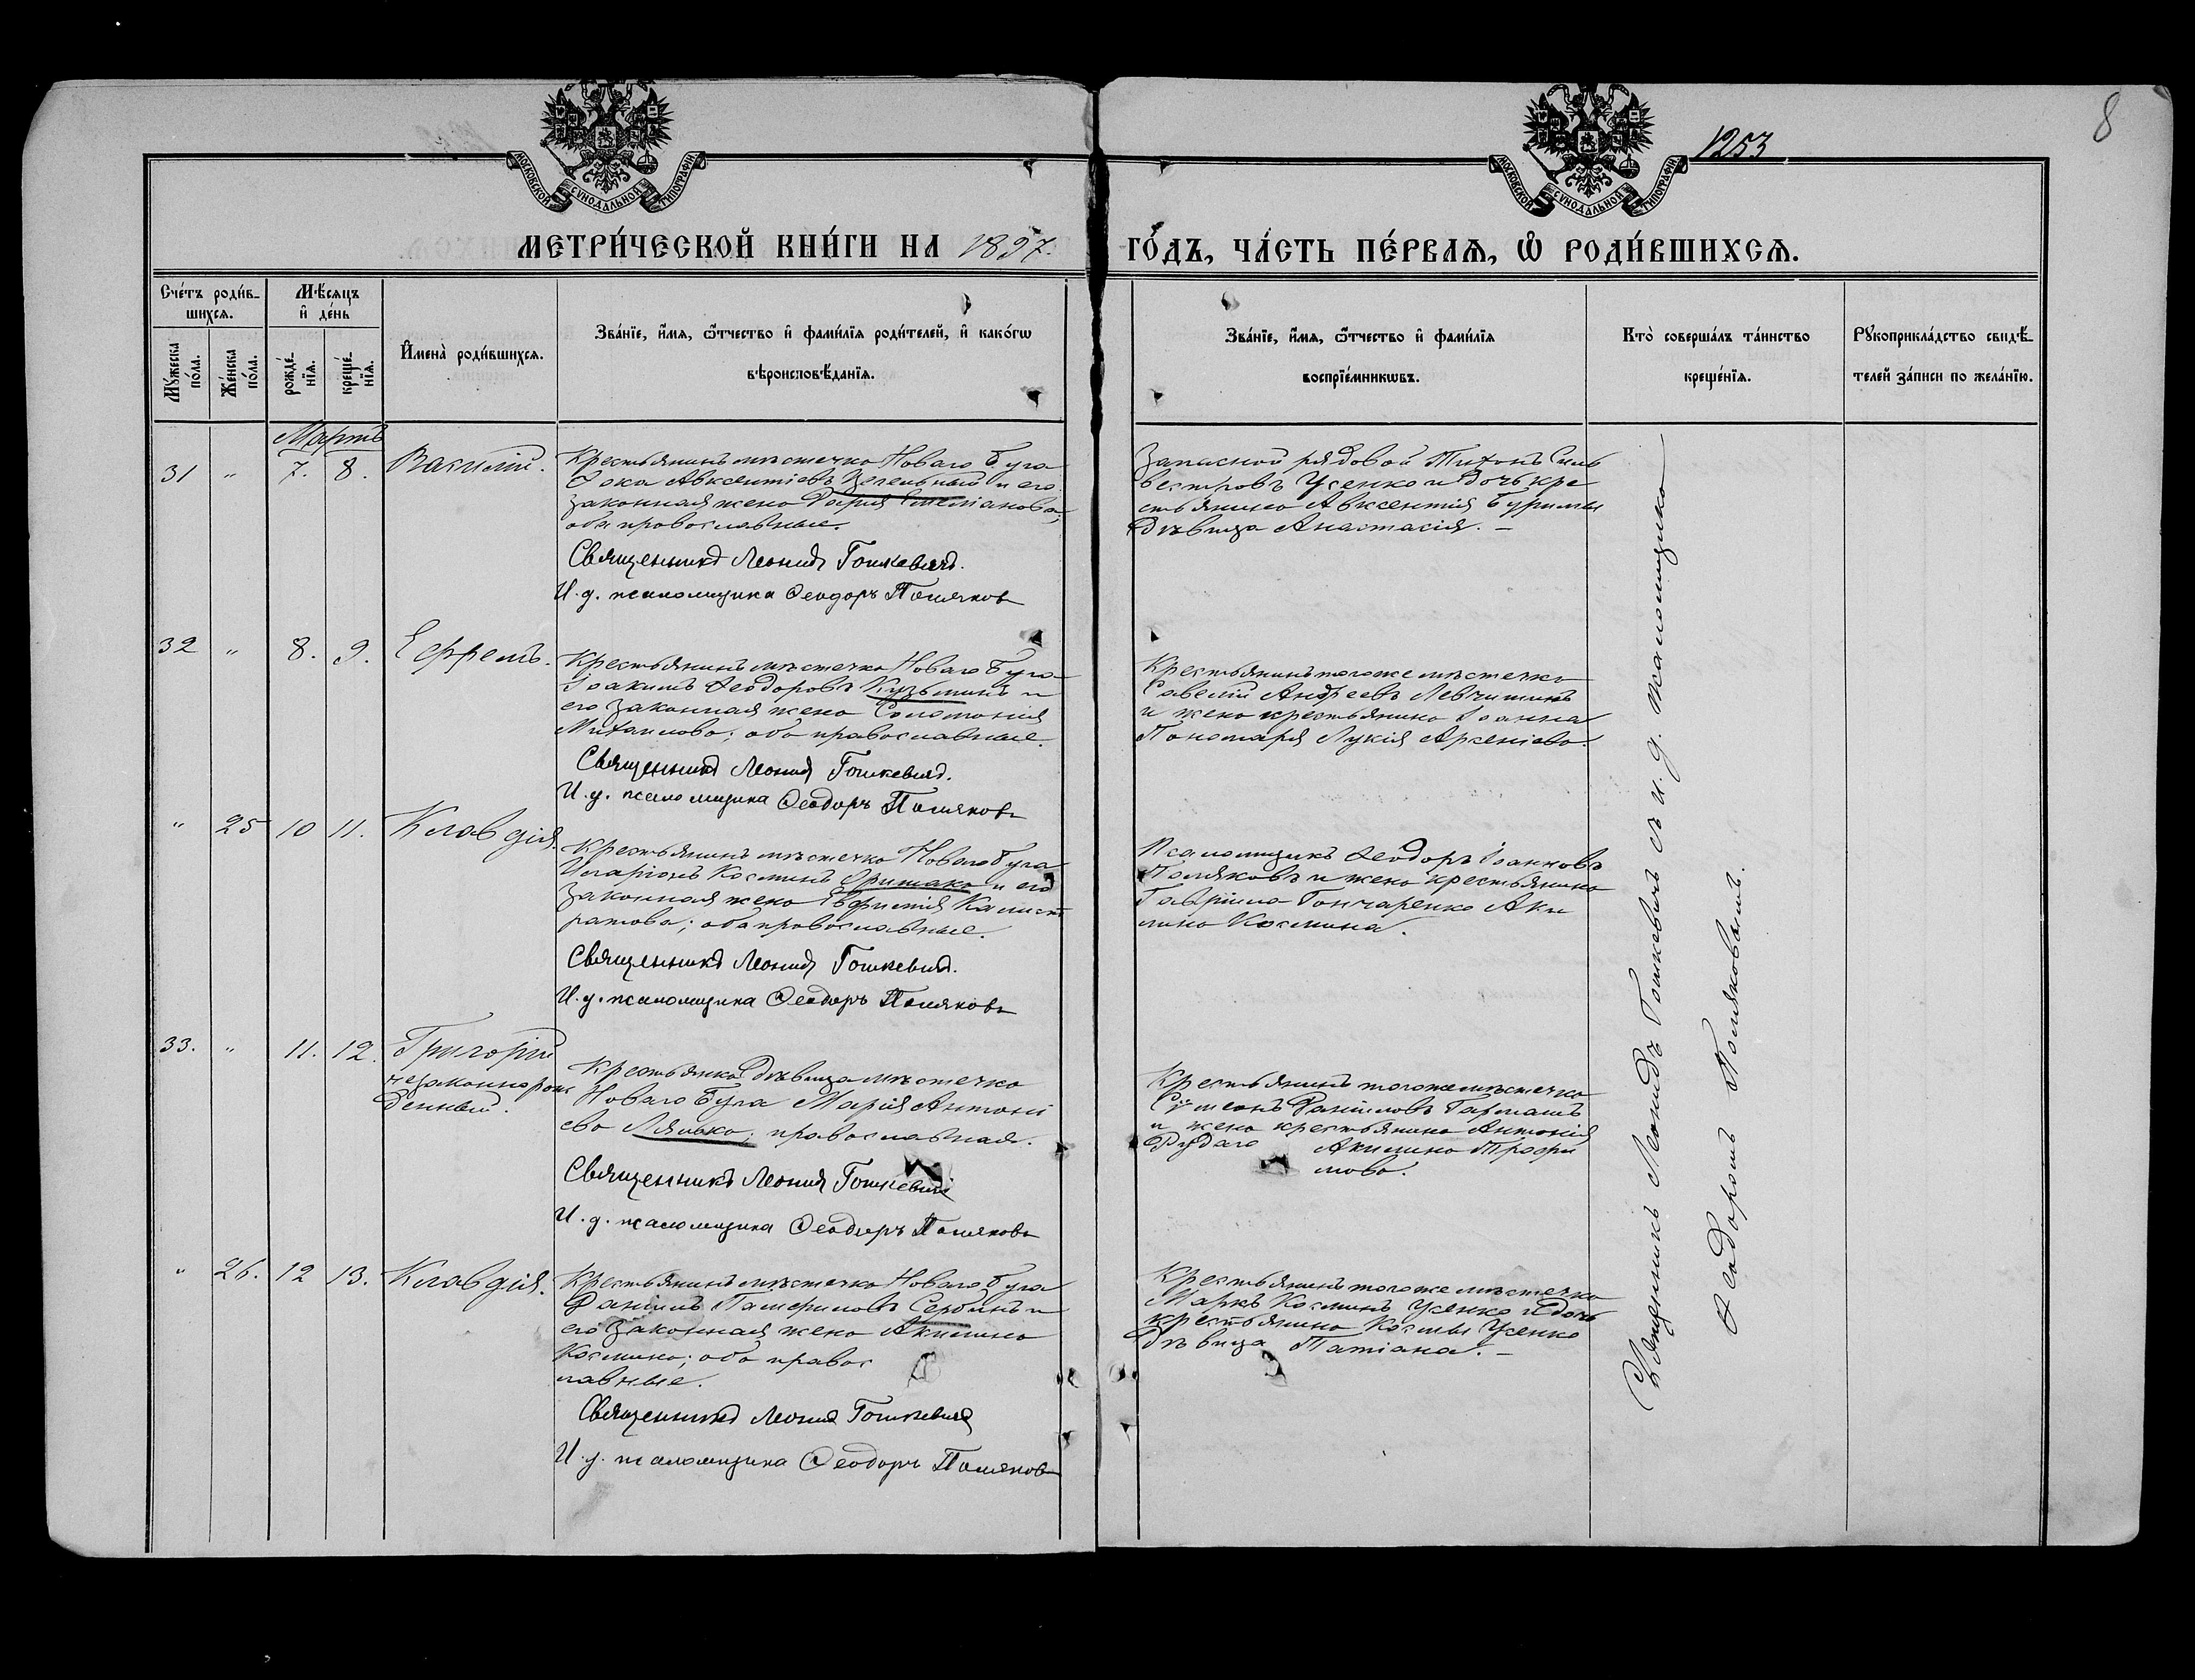 8
1253
МОСКОВСКОЙ СУНОДАЛЬНОЙ ТИПОГРАФІИ
МОСКОВСКОЙ СУНОДАЛЬНОЙ ТИПОГРАФІИ
МЕТРИ́ЧЕСКОЙ КНИ́ГИ НА 1897. ГО́ДЪ, ЧА́СТЬ ПЕ́РВАѦ, Ѡ҆ РОДИ́ВШИХСѦ.
Сче́тъ роди́в-
шихсѧ.
Мѣ́сѧцъ
и҆ де́нь
Мꙋ́жеска
по́ла.
Же́нска
по́ла.
рожде́-
нїѧ.
креще́-
нїѧ.
И҆мена̀ роди́вшихсѧ.
Зва́нїе, и҆́мѧ, ѻ҆́тчество и҆ фами́лїѧ роди́телей, и҆ како́гѡ
вѣроисповѣ́данїѧ.
Зва́нїе, и҆́мѧ, ѻ҆́тчество и҆ фами́лїѧ
воспрїе́мникѡвъ.
Кто̀ соверша́лъ та́инство
креще́нїѧ.
Рꙋкоприкла́дство свидѣ́-
телей за́писи по жела́нїю.
Мартъ
31 " 7. 8. Василій.
Крестьянинъ мѣстечка Новаго Буга
Фока Авксентіевъ и его
законная жена Дарія Емеліанова;
оба православные.
Священникъ Леонидъ Гошкевичъ.
И. д. псаломщика Ѳеодоръ Поляковъ
Запасной рядовой Тихонъ Силь
вестровъ Усенко и дочь кре
стьянина Авксентія Буримы
дѣвица Анастасія. –
32 " 8. 9. Ефремъ.
Крестьянинъ мѣстечка Новаго Буга
Іоакимъ Ѳеодоровъ Кузьминъ и
его законная жена Соломонія
Михаилова; оба православные.
Священникъ Леонидъ Гошкевичъ.
И. д. псаломщика Ѳеодоръ Поляковъ
Крестьянинъ того же мѣстечка
Савелій Андреевъ Левчишинъ
и жена крестьянина Іоанна
Пономаря Лукія Арсеніева.
" 25 10 11. Клавдія.
Крестьянинъ мѣстечка Новаго Буга
Иларіонъ Косминъ и его
законная жена Евфимія Калист
ратова; оба православные.
Священникъ Леонидъ Гошкевичъ.
И. д. псаломщика Ѳеодоръ Поляковъ
Псаломщикъ Ѳеодоръ Іоанновъ
Поляковъ и жена крестьянина
Гавріила Гончаренко Аки
лина Космина.
33. " 11. 12. Григорій
незаконнорож
денный.
Крестьянка дѣвица мѣстечка
Новаго Буга Марія Антоні
ева Лялько; православная.
Священникъ Леонидъ Гошкевичъ
И. д. псаломщика Ѳеодоръ Поляковъ
Крестьянинъ того же мѣстечка
Сумеонъ Даніиловъ Гармашъ
и жена крестьянина Антонія
Рудаго Акилина Трофи
мова.
" 26. 12 13. Клавдія.
Крестьянинъ мѣстечка Новаго Буга
Даніилъ Памфиловъ Сербинъ и
его законная жена Акилина
Космина; оба правос
лавные.
Священникъ Леонидъ Гошкевичъ
И. д. псаломщика Ѳеодоръ Поляковъ
Крестьянинъ того же мѣстечка
Маркъ Косминъ Усенко и дочь
крестьянина Космы Усенко
дѣвица Татіана. –
Священникъ Леонидъ Гошкевичъ съ и. д. псаломщика
Ѳеодоромъ Поляковымъ.